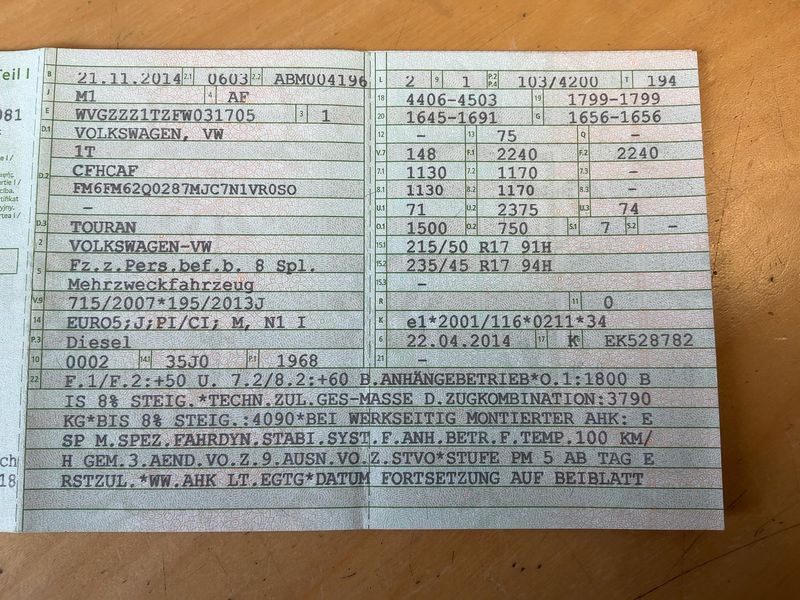 Teil I
081
ch
18
B 21.11.2014 2.1 0603 2.2 ABM004196
J M1 4 AF
E WVGZZZ1TZFW031705 3 1
D.1 VOLKSWAGEN, VW
1T
D.2 CFHCAF
FM6FM62Q0287MJC7N1VR0SO
–
D.3 TOURAN
2 VOLKSWAGEN-VW
5 Fz.z.Pers.bef.b. 8 Spl.
Mehrzweckfahrzeug
V.9 715/2007*195/2013J
14 EURO5;J;PI/CI; M, N1 I
P.3 Diesel
10 0002 14.1 35J0 P.1 1968
L 2 9 1 P.2 P.4 103/4200 T 194
18 4406-4503 19 1799-1799
20 1645-1691 G 1656-1656
12 – 13 75 Q –
V.7 148 F.1 2240 F.2 2240
7.1 1130 7.2 1170 7.3 –
8.1 1130 8.2 1170 8.3 –
U.1 71 U.2 2375 U.3 74
O.1 1500 O.2 750 S.1 7 S.2 –
15.1 215/50 R17 91H
15.2 235/45 R17 94H
15.3 –
R 11 0
K e1*2001/116*0211*34
6 22.04.2014 17 K 16 EK528782
21 –
22 F.1/F.2:+50 U. 7.2/8.2:+60 B.ANHÄNGEBETRIEB*O.1:1800 B
IS 8% STEIG.*TECHN.ZUL.GES-MASSE D.ZUGKOMBINATION:3790
KG*BIS 8% STEIG.:4090*BEI WERKSEITIG MONTIERTER AHK: E
SP M.SPEZ.FAHRDYN.STABI.SYST.F.ANH.BETR.F.TEMP.100 KM/
H GEM.3.AEND.VO.Z.9.AUSN.VO.Z.STVO*STUFE PM 5 AB TAG E
RSTZUL.*WW.AHK LT.EGTG*DATUM FORTSETZUNG AUF BEIBLATT